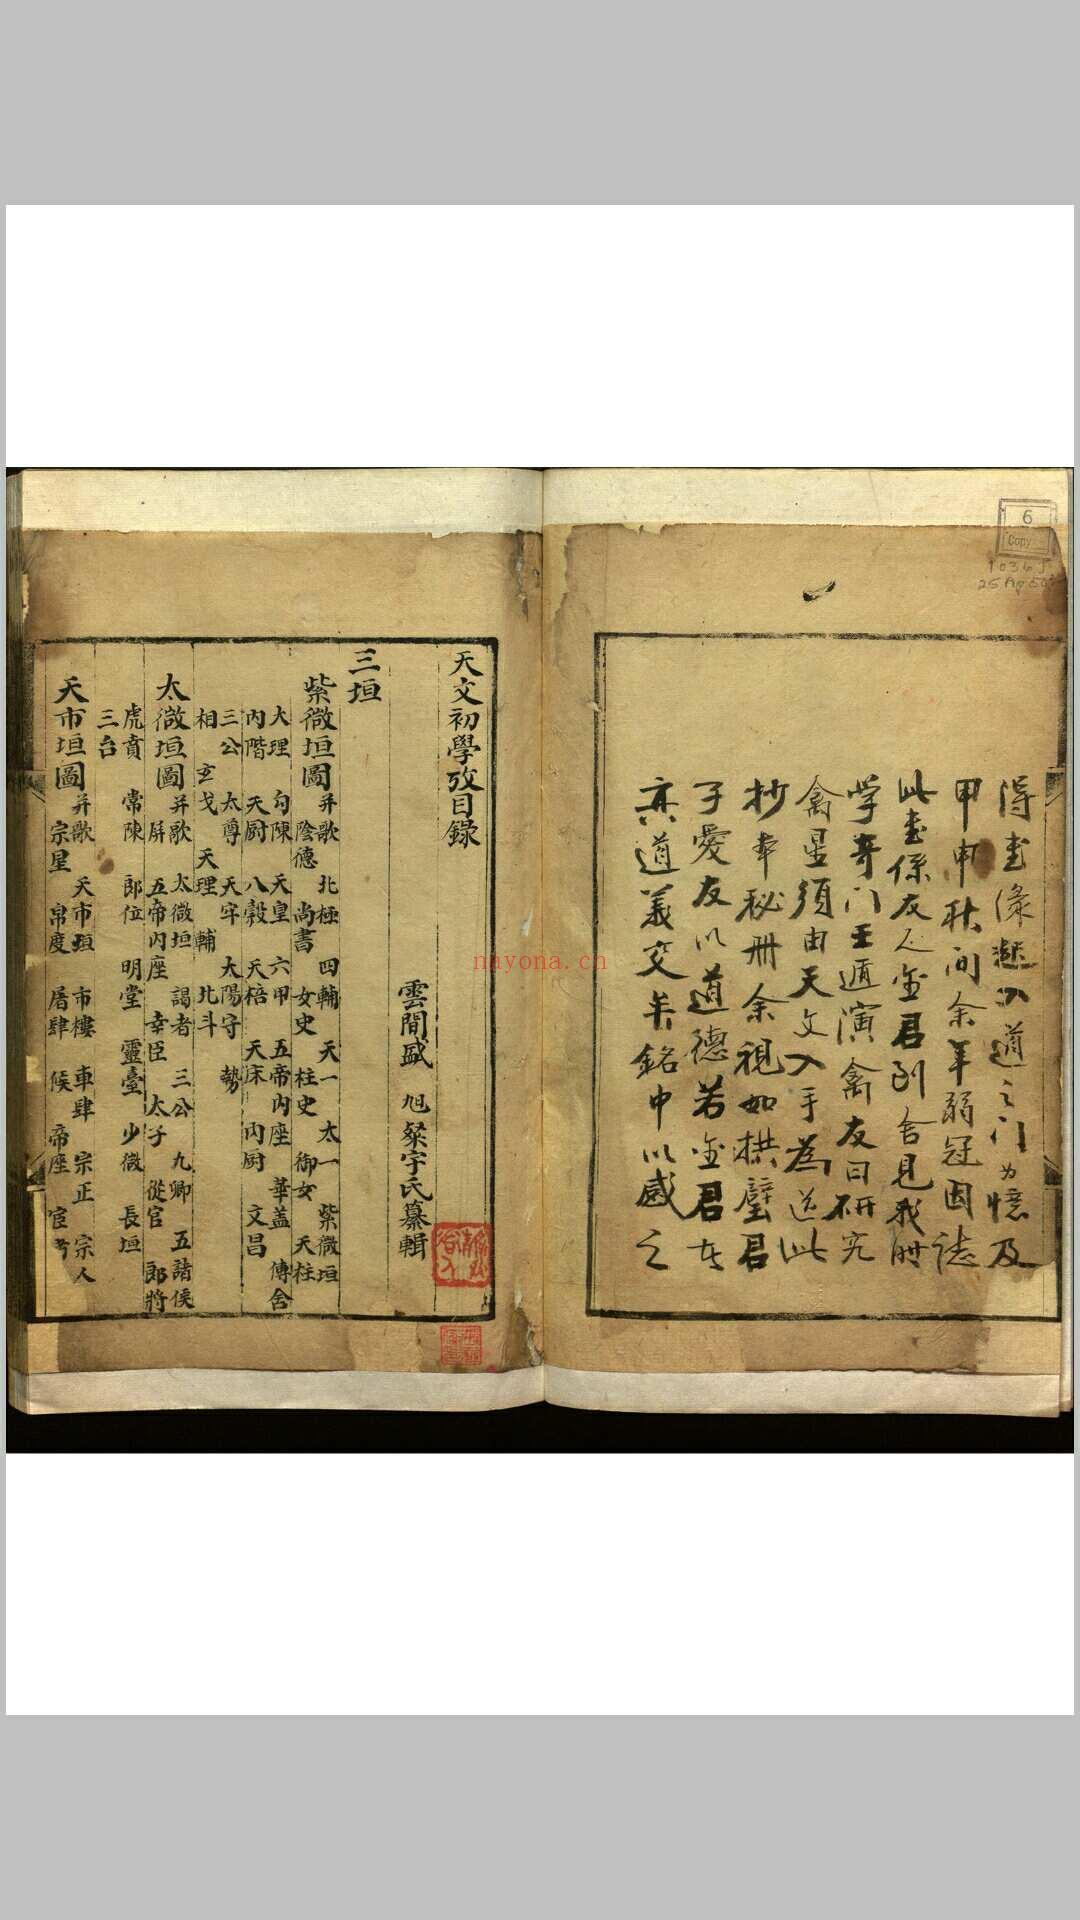 6
Copy
25 Ap 50
得書緣趣入道之门为憶及
甲申秋间余年弱冠因誌
此書係友人金君到舍見我所
学奇门壬遁演禽友曰研究
禽星須由天文入手為送此
抄本秘册余視如拱璧君
子愛友以道德若金君在
亦道義交矣銘中以感之
天文初學攷目錄
雲間盛 旭粲宇氏纂輯
三垣
紫微垣圖 并歌 北極 四輔 天一 太一 紫微垣
陰德 尚書 女史 柱史 御女 天柱
大理 勾陳 天皇 六甲 五帝內座 華盖 傳舍
內階 天厨 八榖 天棓 天床 內厨 文昌
三公 太尊 天牢 太陽守 勢
相 玄戈 天理 輔 北斗
太微垣圖 并歌 太微垣 謁者 三公 九卿 五諸侯
屏 五帝內座 幸臣 太子 從官 郎將
虎賁 常陳 郎位 明堂 靈臺 少微 長垣
三台
天市垣圖 并歌 天市垣 市樓 車肆 宗正 宗人
宗星 帛度 屠肆 候 帝座 宦者
nayona.cn